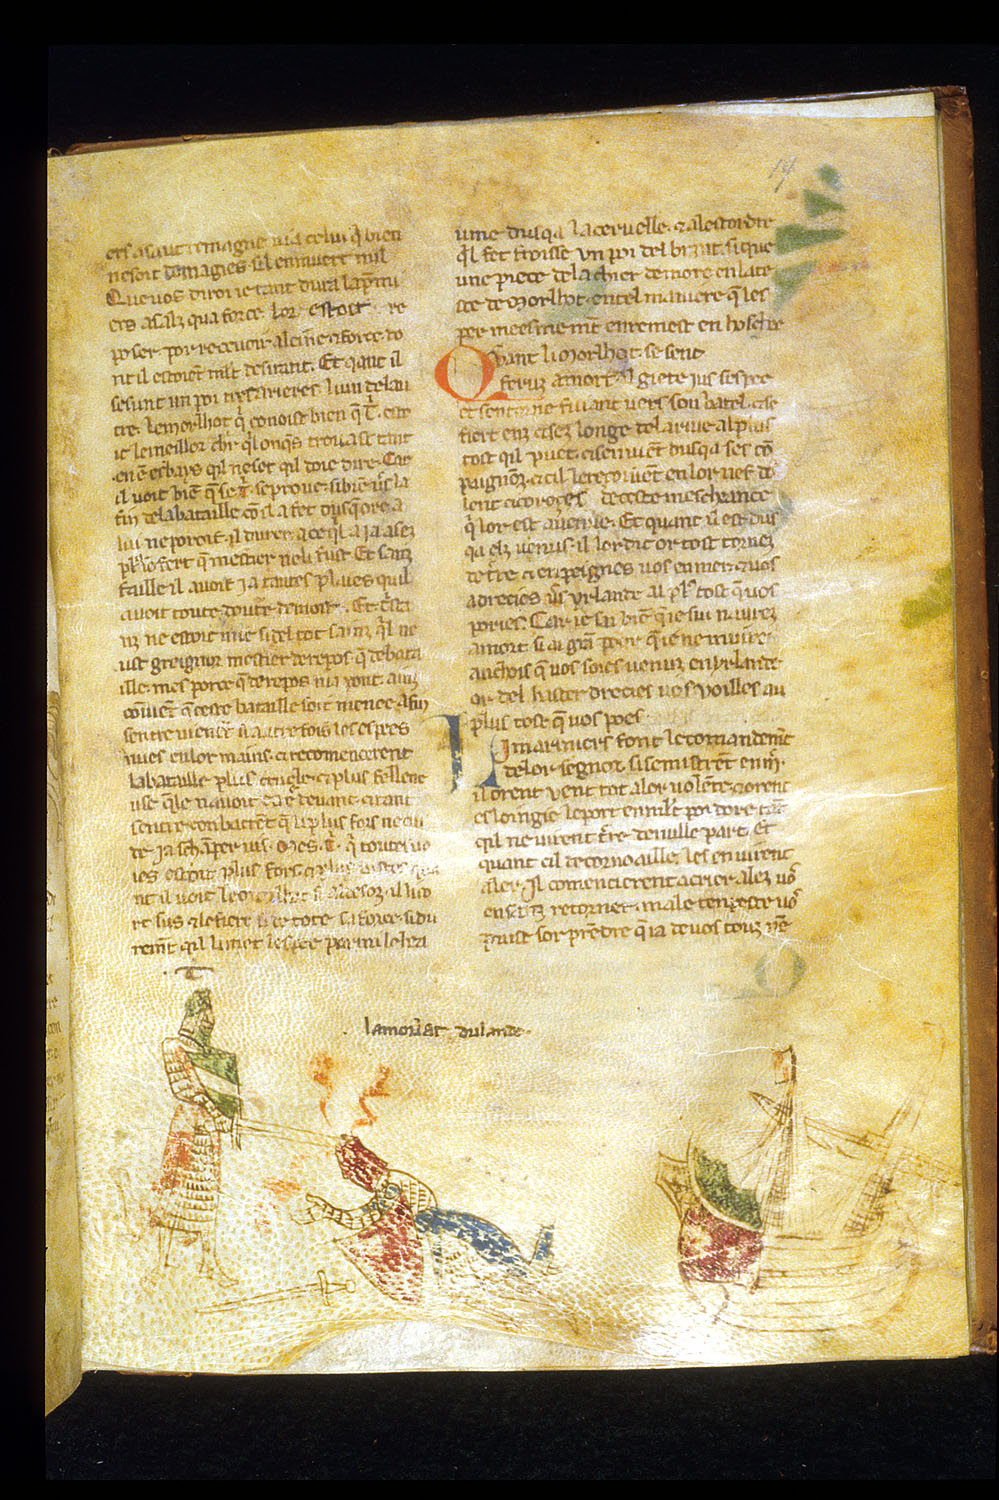 17
ers asaut remagne nia celui q̃ bien
ne soit domagies sil en nuert mil
Que vos diroi ie tant dura la pm̃
ers asalz qua force lor estoit re
poser por recouoir alaine ⁊ force do
nt il estoient mlt̃ desirant. Et qant il
se sunt un poi tres arieres li un de lau
tre. le morlhot q̃ conoist bien q̃ .T. este
it le meillor chr̃ q̃l onq̃s trouast tant
en ẽ esbays qil ne set qil doie dire. Car
il voit biẽ q̃ se .T. se proue si biẽ vs̃ la
fin de la bataille cõ il a fet dusq̃ ore a
lui ne poroit il durer
q̃ mestier no li fust Et sanz
faille il auoit ja tantes plaies quil
auoit toute doute de mort. Et
ne estoit mie si del tot sainz q̃l ne
ust greignur mestier de repos q̃ de bata
ille. mes porce q̃ de repos nia point ainz
cõuient q̃ ceste bataille soit menee a fin
sentre uienent autre fois les espees
nues en lor mains. ⁊ recomencerent
la bataille plus cruele ⁊ plus fellene
use q̃le nauoit esté deuant. ⁊ tant
sentre combatẽt q̃ li plus fors ne cui
de ja eschãper vis. Mes .T. q̃ toute vo
ies estoit plus fors ⁊ plus
nt il voit le morlhot si il li co
rt sus ⁊ le fiert de tote sa force si du
remt̃ qil li met lespee parmi le hia
ume dusqua la ceruelle. ⁊ al estordre
q̃l fet froisse un poi del brant. si que
une piece de lachier demore en la te
ste de Morlhot. en tel maniere q̃ les
pee meesme mt̃ en remest en hosche
Quant li Morlhot se sent
feruz a mort. il giete jus sespee
et sen torne fuiant vers son batel. ⁊ se
fiert enz ⁊ sez longe de la riue al plus
tost qil puet. ⁊ sen vient dusqa ses cõ
paignõz. ⁊ cil le reçoiuent en lor nef do
lent ⁊ coroces de ceste meschance
q̃ lor est auenue. Et quant il est dus
qa elz venus. il lor dit or tost tornez
de tr̃e ⁊ enpeignes vos en mer. ⁊ vos
adrecies vs̃ yrlande al pls̃ tost q̃ vos
pories. Car ie sai biẽ q̃ ie sui naurez
a mort. si ai grãt poor q̃ ie ne muire
anchois q̃ vos soies venuz en yrlande
or del haster drecies vos voilles au
plus tost q̃ vos poes
Li mariniers font le comandemẽt
de lor segnor. si se mistrẽt en mr̃.
il orent vent tot a lor volẽte. ⁊ orent
esloingie le port en mlt̃ poi dore tãt
qil ne virent tr̃e de nulle part. Et
quant cil de cornoaille. les en virent
aler. Il comencierent a crier alez vo9
en sanz retorner. male tenpeste vo9
puist sorprẽdre q̃ ia de vos touz
T
lamorhat dirlande.